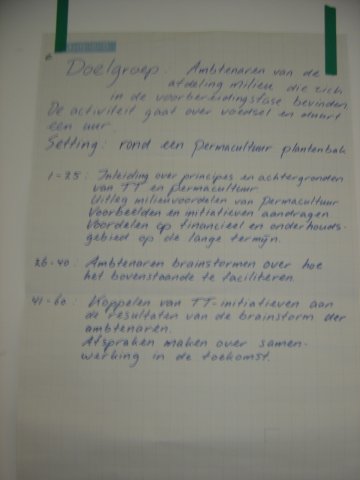 Doelgroep: Ambtenaren van de
afdeling milieu die zich
in de voorbereidingsfase bevinden.
De activiteit gaat over voedsel en duurt
een uur.
Setting: rond een permacultuur plantenbak
1-25: Inleiding over principes en achtergronden
van TT en permacultuur.
Uitleg milieuvoordelen van permacultuur
Voorbeelden en initiatieven aandragen
Voordelen op financieel en onderhouds-
gebied op de lange termijn.
26-40: Ambtenaren brainstormen over hoe
het bovenstaande te faciliteren.
41-60: Koppelen van TT-initiatieven aan
de resultaten van de brainstorm der
ambtenaren.
Afspraken maken over samen-
werking in de toekomst.